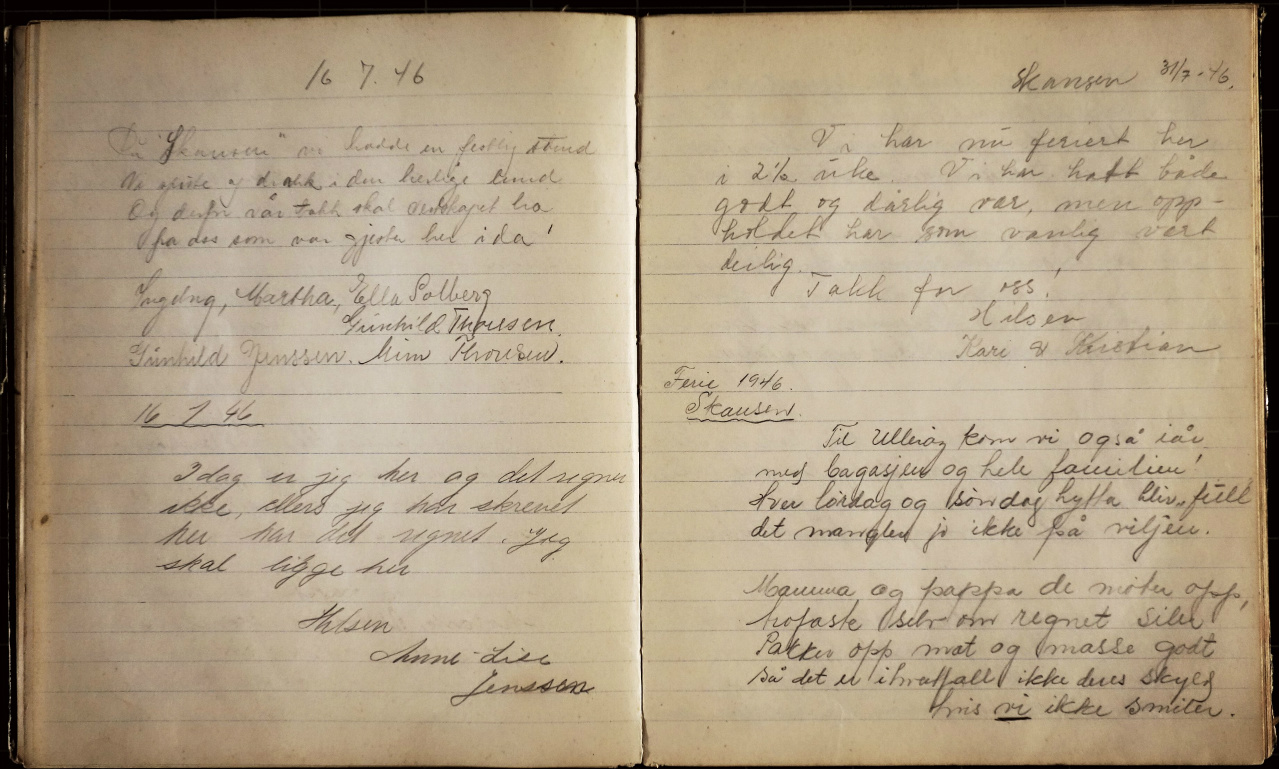 16 7. 46
På "Skansen" vi hadde en festlig stund
Vi spiste og drakk i den herlige lund
Og derfor vår takk skal vertskapet ha
fra oss som var gjester her ida'
Ingebng, Martha, Ella Solberg
Gunhild Thoresen.
Gunhild Jenssen. Mim Thoresen.
16 7 46
Idag er jeg her og det regner
ikke, ellers jeg har skrevet
her har det regnet. Jeg
skal ligge her
Hilsen
Anne-Lise
Jenssen
Skansen 31/7-46.
Vi har nu feriert her
i 2½ uke. Vi har hatt både
godt og dårlig vær, men opp-
holdet har som vanlig vært
deilig.
Takk for oss!
Hilsen
Kari & Kristian
Ferie 1946.
Skansen.
Til Ullerøy kom vi også iår
med bagasjen og hele familien!
Hver lørdag og søndag hytta blir full
det mangler jo ikke på viljen.
Mamma og pappa de møter opp,
trofaste selv om regnet siler
Pakker opp mat og masse godt
så det er ihvertfall ikke deres skyld
hvis vi ikke smiler.